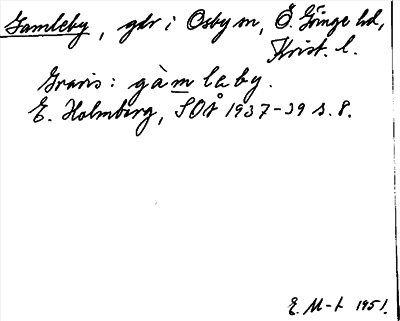 Gamleby, gdr i Osby sn, Ö. Göinge hd,
Krist. l.
Gravis: gàm laby.
E. Holmberg, SOÅ 1937-39 s. 8.
E. M-t 1951.